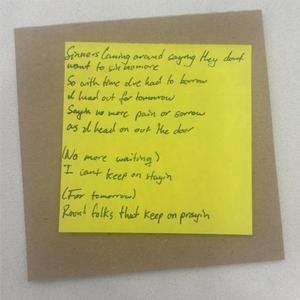 Sinners Coming around saying they dont
want to sin nomore
So with time ive had to borrow
Id head out for tomorrow
Sayin no more pain or sorrow
as id head on out the door
(No more waiting)
I cant keep on stayin
(For tomorrow)
Round folks that keep on prayin